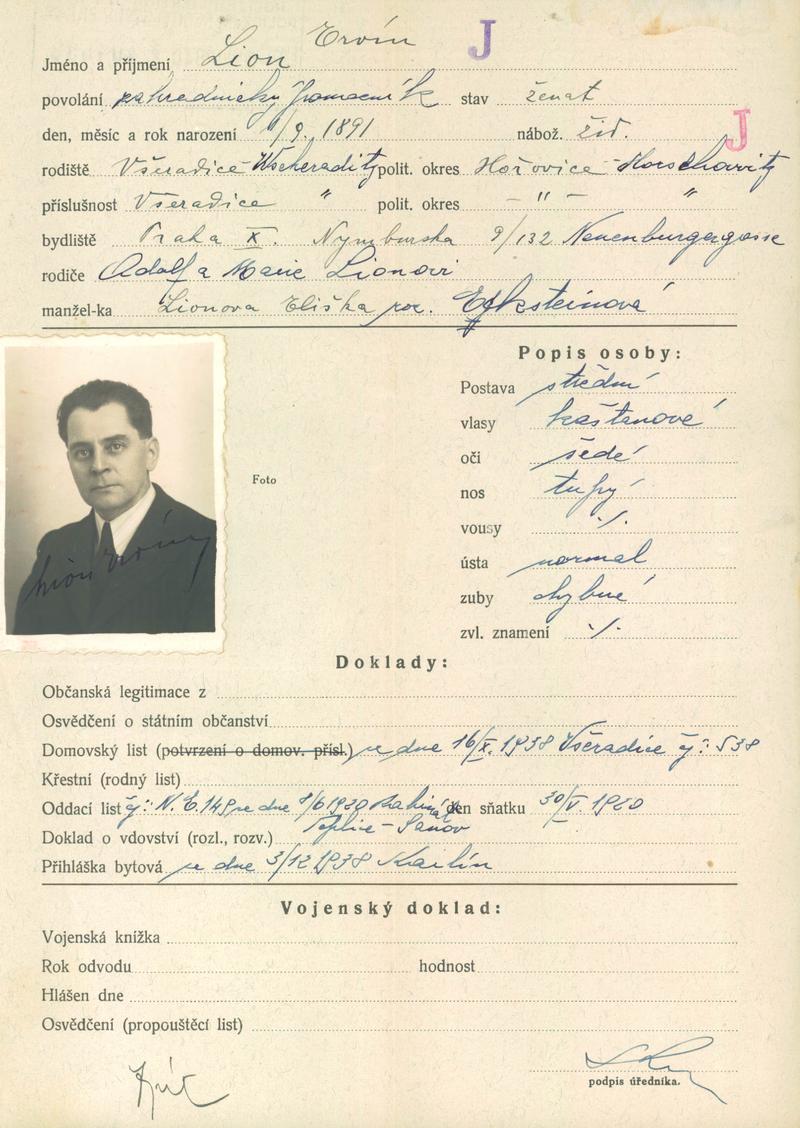 Jméno a příjmení Lion Ervín J
povolání zahradnický pomocník stav ženat
den, měsíc a rok narození /9. 1891 nábož. žid. J
rodiště Všeradice Wscheraditz polit. okres Hořovice Horschowitz
příslušnost Všeradice " polit. okres - " - "
bydliště Praha X. Nymburska 9/132 Neuenburgergasse
rodiče Adolf a Marie Lionovi
manžel-ka Lionova Eliška roz. Eksteinová
Popis osoby:
Postava střední
vlasy kaštanové
oči šedé
Foto
nos tupý
vousy ./.
ústa normal
zuby chybné
zvl. znamení ./.
Lion Ervín
Doklady:
Občanská legitimace z
Osvědčení o státním občanství
Domovský list (potvrzení o domov. přísl.) ze dne 16/X. 1938 Všeradice čj: 538
Křestní (rodný list)
Oddací list čj: N.E. 149 ze dne 1/6 1920 den sňatku 30/V. 1920
Teplice - Šanov
Doklad o vdovství (rozl., rozv.)
Přihláška bytová ze dne 3/12 1938 Karlín
Vojenský doklad:
Vojenská knížka
Rok odvodu hodnost
Hlášen dne
Osvědčení (propouštěcí list)
podpis úředníka.